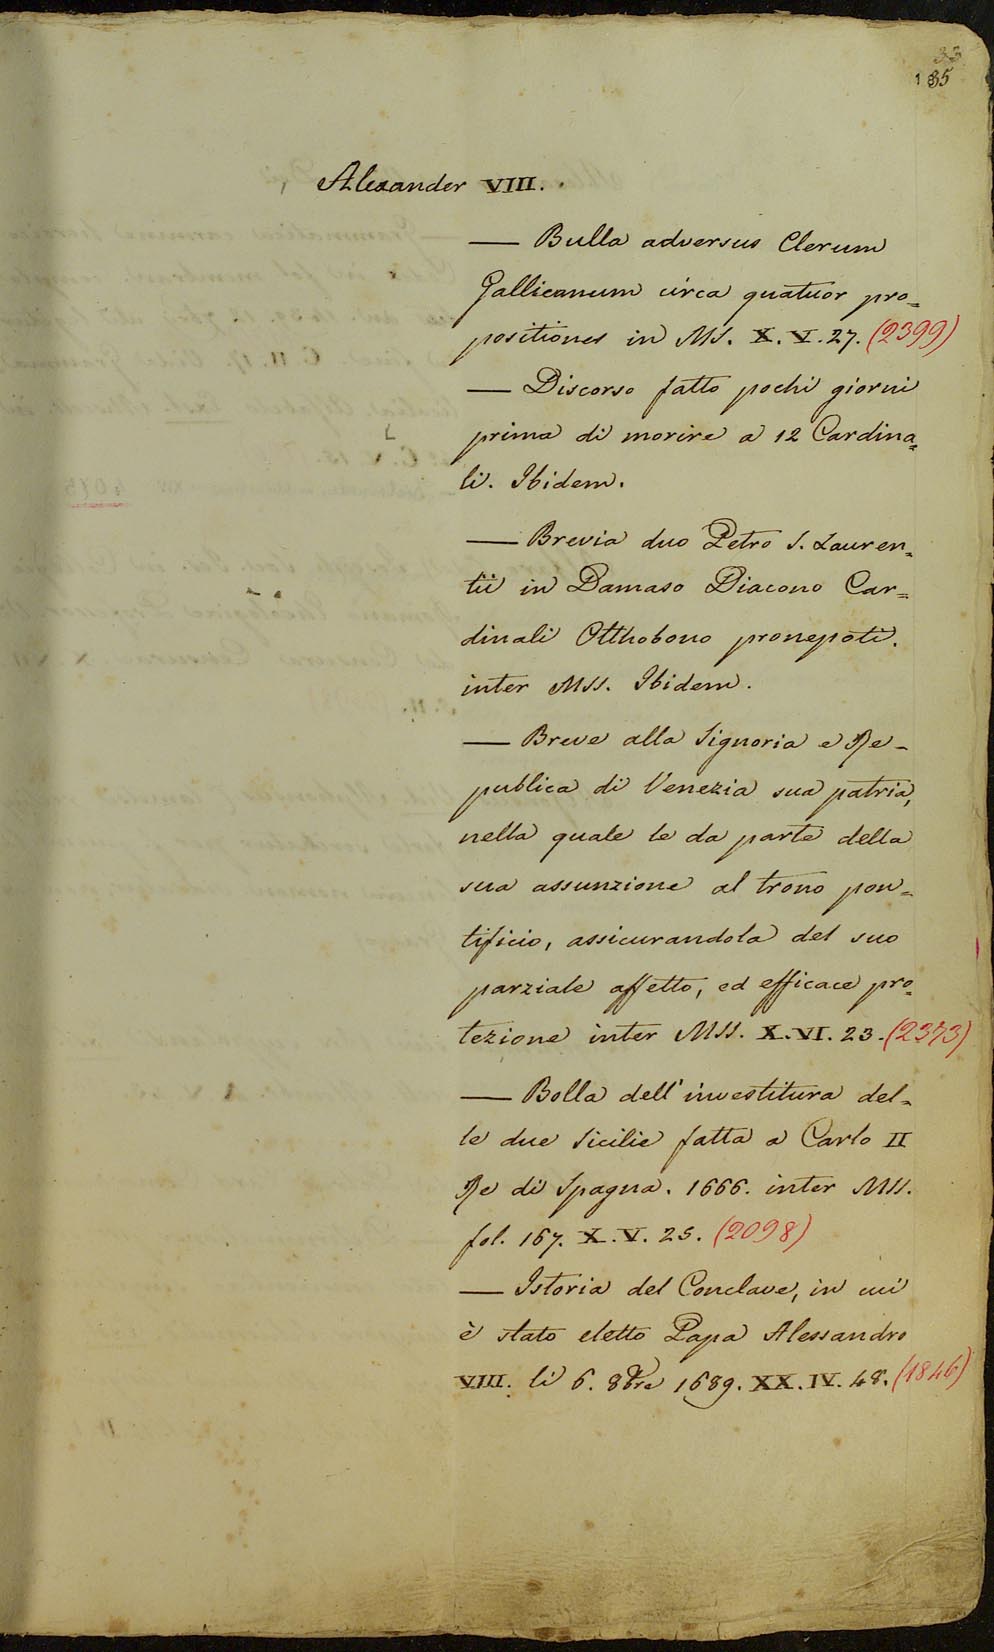 33
135
Alexander VIII.
— Bulla adversus Clerum
Gallicanum circa quatuor pro=
positiones in MS. X. V. 27. (2399)
— Discorso fatto pochi giorni
prima di morire a 12 Cardina=
li. Ibidem.
— Brevia duo Petro S. Lauren=
tii in Damaso Diacono Car=
dinali Otthobono pronepoti.
inter MSS. Ibidem.
— Breve alla Signoria e Re=
publica di Venezia sua patria,
nella quale le da parte della
sua assunzione al trono pon=
tificio, assicurandola del suo
parziale affetto, ed efficace pro=
tezione inter MSS. X. VI. 23. (2373)
— Bolla dell'investitura del=
le due Sicilie fatta a Carlo II
Re di Spagna. 1666. inter MSS.
fol. 167. X. V. 25. (2098)
— Istoria del Conclave, in cui
è stato eletto Papa Alessandro
VIII. li 6. 8bre 1689. XX. IV. 48. (1846)